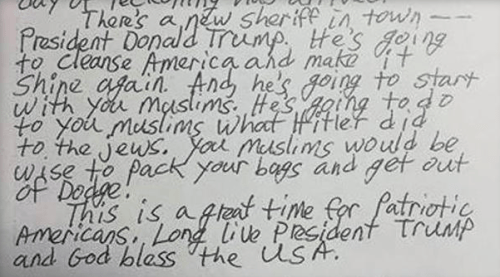 day of reckoning
There's a new sheriff in town --
President Donald Trump. He's going
to cleanse America and make it
shine again. And, he's going to start
with you muslims. He's going to do
to you muslims what Hitler did
to the jews. You muslims would be
wise to pack your bags and get out
of Dodge.
This is a great time for Patriotic
Americans. Long live President Trump
and God bless the USA.